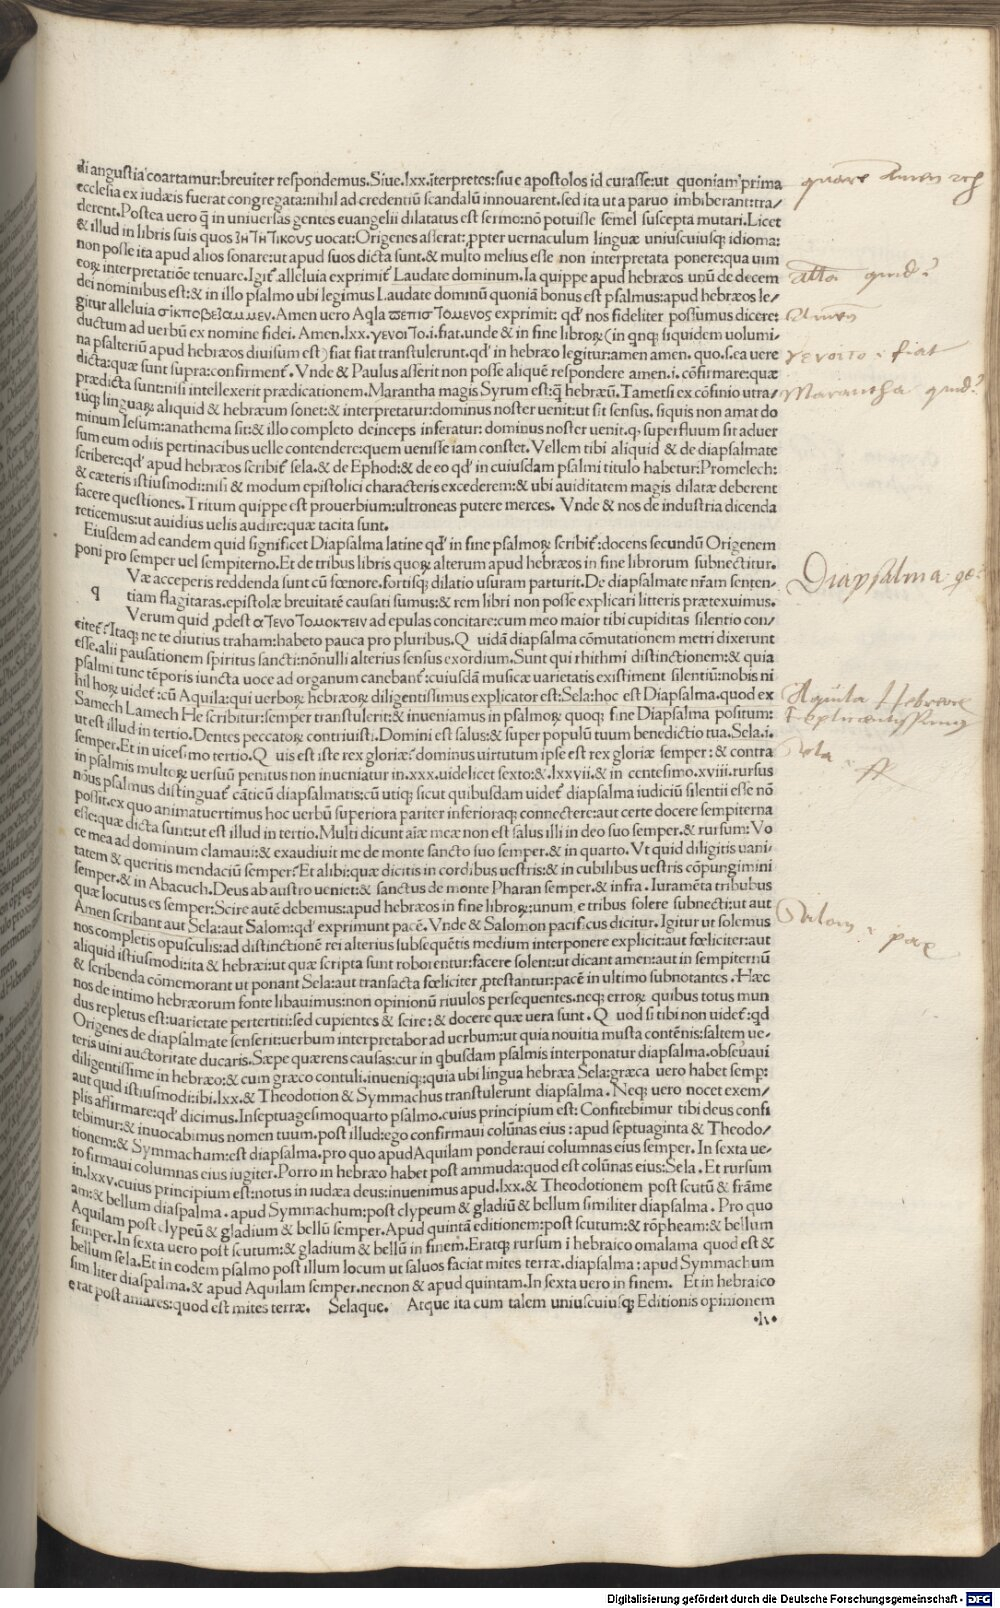 di angustia coartamur:breuiter respondemus. Siue .lxx. īterpretes:siue apostolos id curasse:ut quoniam prima
ecclesia ex iudæis fuerat congregata:nihil ad credentiū scandalū innouarent. sed ita ut a paruo imbiberant:tra/
derent. Postea uero q̄ in uniuersas gentes euangelii dilatatus est sermo:nō potuisse semel suscepta mutari. Licet
& illud in libris suis quos ἐξηγητικους uocat:Origenes asserat:ꝓpter uernaculum linguæ uniuscuiusꝗ idioma:
non posse ita apud alios sonare:ut apud suos dicta sunt.& multo melius esse non interpretata ponere:qua uim
eoꝝ interpretatiōe tenuare. Igit̄ alleluia exprimit̄ Laudate dominum. Ia quippe apud hebræos unū de decem
dei nominibus est:& in illo psalmo ubi legimus Laudate dominū quoniā bonus est psalmus:apud hebræos le/
gitur alleluia σικποβεϊαμμεν. Amen uero Aqla πεπιστομενος exprimit: qđ nos fideliter possumus dicere:
ductum ad uerbū ex nomine fidei. Amen .lxx. γενοιτο .i. fiat. unde & in fine libroꝝ (in qnꝗ siquidem uolumi/
na psalteriū apud hebræos diuisum est) fiat fiat transtulerunt. qđ in hebræo legitur:amen amen. quo .s. ea uere
dicta:quæ sunt supra:confirment̄. Vnde & Paulus asserit non posse aliquē respondere amen .i. cōfirmare:quæ
prædicta sunt:nisi intellexerit prædicationem. Marantha magis Syrum est:q̄ hebræū. Tametsi ex cōfinio utra/
rūqꝫ linguaꝝ aliquid & hebræum sonet:& interpretatur:dominus noster uenit:ut sit sensus. siquis non amat do
minum Iesum:anathema sit:& illo completo deinceps inferatur: dominus noster uenit. ꝙ superfluum sit aduer
sum eum odiis pertinacibus uelle contendere:quem uenisse iam constet. Vellem tibi aliquid & de diapsalmate
scribere:qđ apud hebræos scribit̄ sela.& de Ephod:& de eo qđ in cuiusdam psalmi titulo habetur:Promelech:
& cæteris istiusmodi:nisi & modum epistolici characteris excederem:& ubi auiditatem magis dilatæ deberent
facere questiones. Tritum quippe est prouerbium:ultroneas putere merces. Vnde & nos de industria dicenda
reticemus:ut auidius uelis audire:quæ tacita sunt.
Eiusdem ad eandem quid significet Diapsalma latine qđ in fine psalmoꝝ scribit̄:docens secundū Origenem
poni pro semper uel sempiterno. Et de tribus libris quoꝝ alterum apud hebræos in fine librorum subnectitur.
q
Væ acceperis reddenda sunt cū fœnore. fortisꝗ dilatio usuram parturit. De diapsalmate nr̄am senten/
tiam flagitaras. epistolæ breuitatē causati sumus:& rem libri non posse explicari litteris prætexuimus.
Verum quid ꝓdest ad epulas concitare:cum meo maior tibi cupiditas silentio con/
citet̄? Itaqꝫ ne te diutius traham:habeto pauca pro pluribus. Q uidā diapsalma cōmutationem metri dixerunt
esse. alii pausationem spiritus sancti:nōnulli alterius sensus exordium. Sunt qui rhithmi distinctionem:& quia
psalmi tunc tēporis iuncta uoce ad organum canebant̄:cuiusdā musicæ uarietatis existiment silentiū:nobis ni
hil hoꝝ uidet̄:cū Aquila:qui uerboꝝ hebræoꝝ diligentissimus explicator est:Sela:hoc est Diapsalma. quod ex
Samech Lamech He scribitur:semper transtulerit:& inueniamus in psalmoꝝ quoqꝫ fine Diapsalma positum:
ut est illud in tertio. Dentes peccatoꝝ contriuisti. Domini est salus:& super populū tuum benedictio tua. Sela .i.
semper. Et in uicesimo tertio. Q uis est iste rex gloriæ? dominus uirtutum ipse est rex gloriæ semper: & contra
in psalmis multoꝝ uersuū penitus non inueniatur in .xxx. uidelicet sexto:& .lxxvii. & in centesimo .xviii. rursus
nōus psalmus distinguat̄ cāticū diapsalmatis:cū utiqꝫ sicut quibusdam uidet̄ diapsalma iudiciū silentii esse nō
possit. ex quo animaduertimus hoc uerbū superiora pariter inferioraqꝫ connectere:aut certe docere sempiterna
esse:quæ dicta sunt:ut est illud in tertio. Multi dicunt aīæ meæ non est salus illi in deo suo semper. & rursum: Vo
ce mea ad dominum clamaui:& exaudiuit me de monte sancto suo semper. & in quarto. Vt quid diligitis uani/
tatem & queritis mendaciū semper? Et alibi:quæ dicitis in cordibus uestris:& in cubilibus uestris cōpungimini
semper. & in Abacuch. Deus ab austro ueniet:& sanctus de monte Pharan semper. & infra. Iuramēta tribubus
quæ locutus es semper: Scire autē debemus:apud hebræos in fine libroꝝ:unum e tribus solere subnecti:ut aut
Amen scribant aut Sela:aut Salom:qđ exprimunt pacē. Vnde & Salomon pacificus dicitur. Igitur ut solemus
nos completis opusculis:ad distinctionē rei alterius subsequētis medium interponere explicit:aut fœliciter:aut
aliquid istiusmodi:ita & hebræi:ut quæ scripta sunt roborentur:facere solent:ut dicant amen:aut in sempiternū
& scribenda cōmemorant ut ponant Sela:aut transacta fœliciter ꝓtestantur:pacē in ultimo subnotantes. Hæc
nos de intimo hebræorum fonte libauimus:non opinionū riuulos persequentes. neqꝫ erroꝝ quibus totus mun
dus repletus est:uarietate perterriti:sed cupientes & scire: & docere quæ uera sunt. Q uod si tibi non uidet̄:qđ
Origenes de diapsalmate senserit:uerbum interpretabor ad uerbum:ut quia nouitia musta contēnis:saltem ue/
teris uini auctoritate ducaris. Sæpe quærens causas:cur in qbusdam psalmis interponatur diapsalma. obseruaui
diligentissime in hebræo:& cum græco contuli. inueniqꝫ:quia ubi lingua hebræa Sela:græca uero habet semp:
aut quid istiusmodi:ibi .lxx. & Theodotion & Symmachus transtulerunt diapsalma. Neqꝫ uero nocet exem/
plis affirmare:qđ dicimus. Inseptuagesimoquarto psalmo. cuius principium est: Confitebimur tibi deus confi
tebimur:& inuocabimus nomen tuum. post illud:ego confirmaui colūnas eius: apud septuaginta & Theodo/
tionem:& Symmachum:est diapsalma. pro quo apud Aquilam ponderaui columnas eius semper. In sexta ue/
ro firmaui columnas eius iugiter. Porro in hebræo habet post ammuda:quod est colūnas eius:Sela. Et rursum
in .lxxv. cuius principium est:notus in iudæa deus:inuenimus apud .lxx. & Theodotionem post scutū & frāme
am:& bellum diaspalma. apud Symmachum:post clypeum & gladiū & bellum similiter diapsalma. Pro quo
Aquilam post clypeū & gladium & bellū semper. Apud quintā editionem:post scutum:& rōpheam:& bellum
semper. In sexta uero post scutum:& gladium & bellū in finem. Eratqꝫ rursum ī hebraico omalama quod est &
bellum sela. Et in eodem psalmo post illum locum ut saluos faciat mites terræ. diapsalma: apud Symmachum
similiter diaspalma. & apud Aquilam semper. necnon & apud quintam. In sexta uero in finem. Et in hebraico
erat post aniares:quod est mites terræ. Selaque. Atque ita cum talem uniuscuiusqꝫ Editionis opinionem
·h·
quare Amen
alla quid?
Amen
γενοιτο : fiat
Marantha quid?
Diapsalma
Aquila Hebreae
Explicantissimus
Sela
Salom : pax
Digitalisierung gefördert durch die Deutsche Forschungsgemeinschaft - DFG